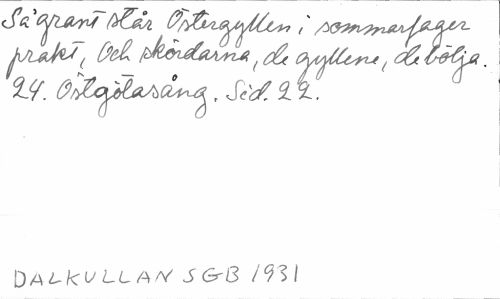 Så grant står Östergyllen i sommarfager
prakt, Och skördarna, de gyllene, de bölja.
24. Östgötasång. Sid. 22.
DALKULLAN SGB 1931